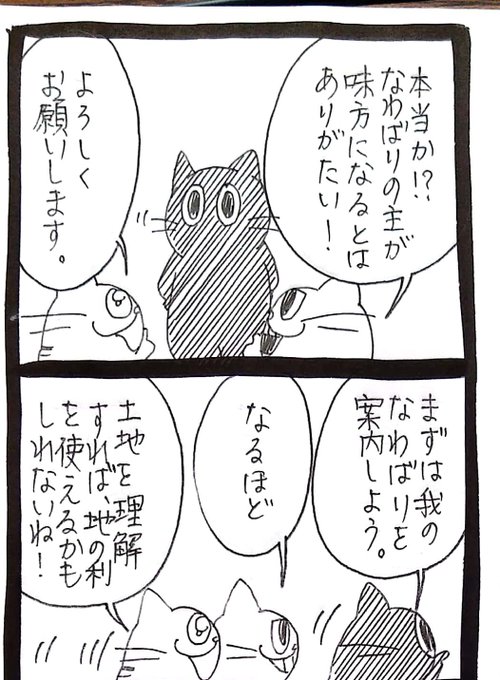 本当か!?
なわばりの主が
味方になるとは
ありがたい!
よろしく
お願いします。
まずは我の
なわばりを
案内しよう。
なるほど
土地を理解
すれば、地の利
を使えるかも
しれないね!